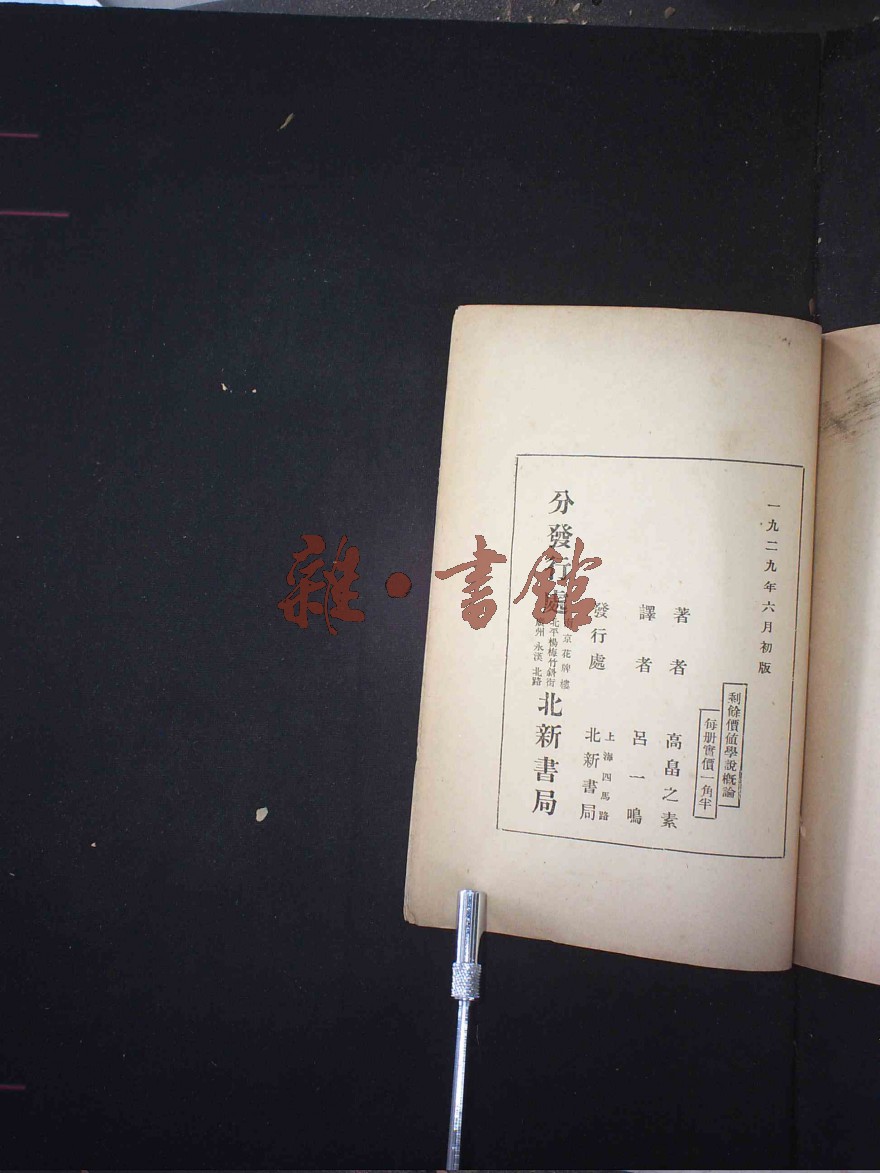 一九二九年六月初版
剩餘價值學說概論
每册實價一角半
著者　高畠之素
譯者　呂一鳴
發行處　上海四馬路
北新書局
分發行處　京花牌樓
北平楊梅竹斜街
廣州永漢北路
北新書局
雜·書館